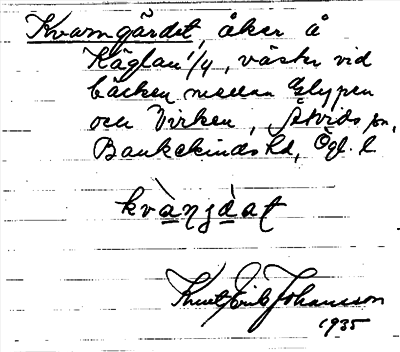 Kvarngärdet, åker å
Käglan 1/4, väster vid
bäcken mellan Glypen
och Virken, Åtvids sn,
Bankekinds hd, Ögl. l.
kvàngɉàt
Knut-Erik Johansson
1935